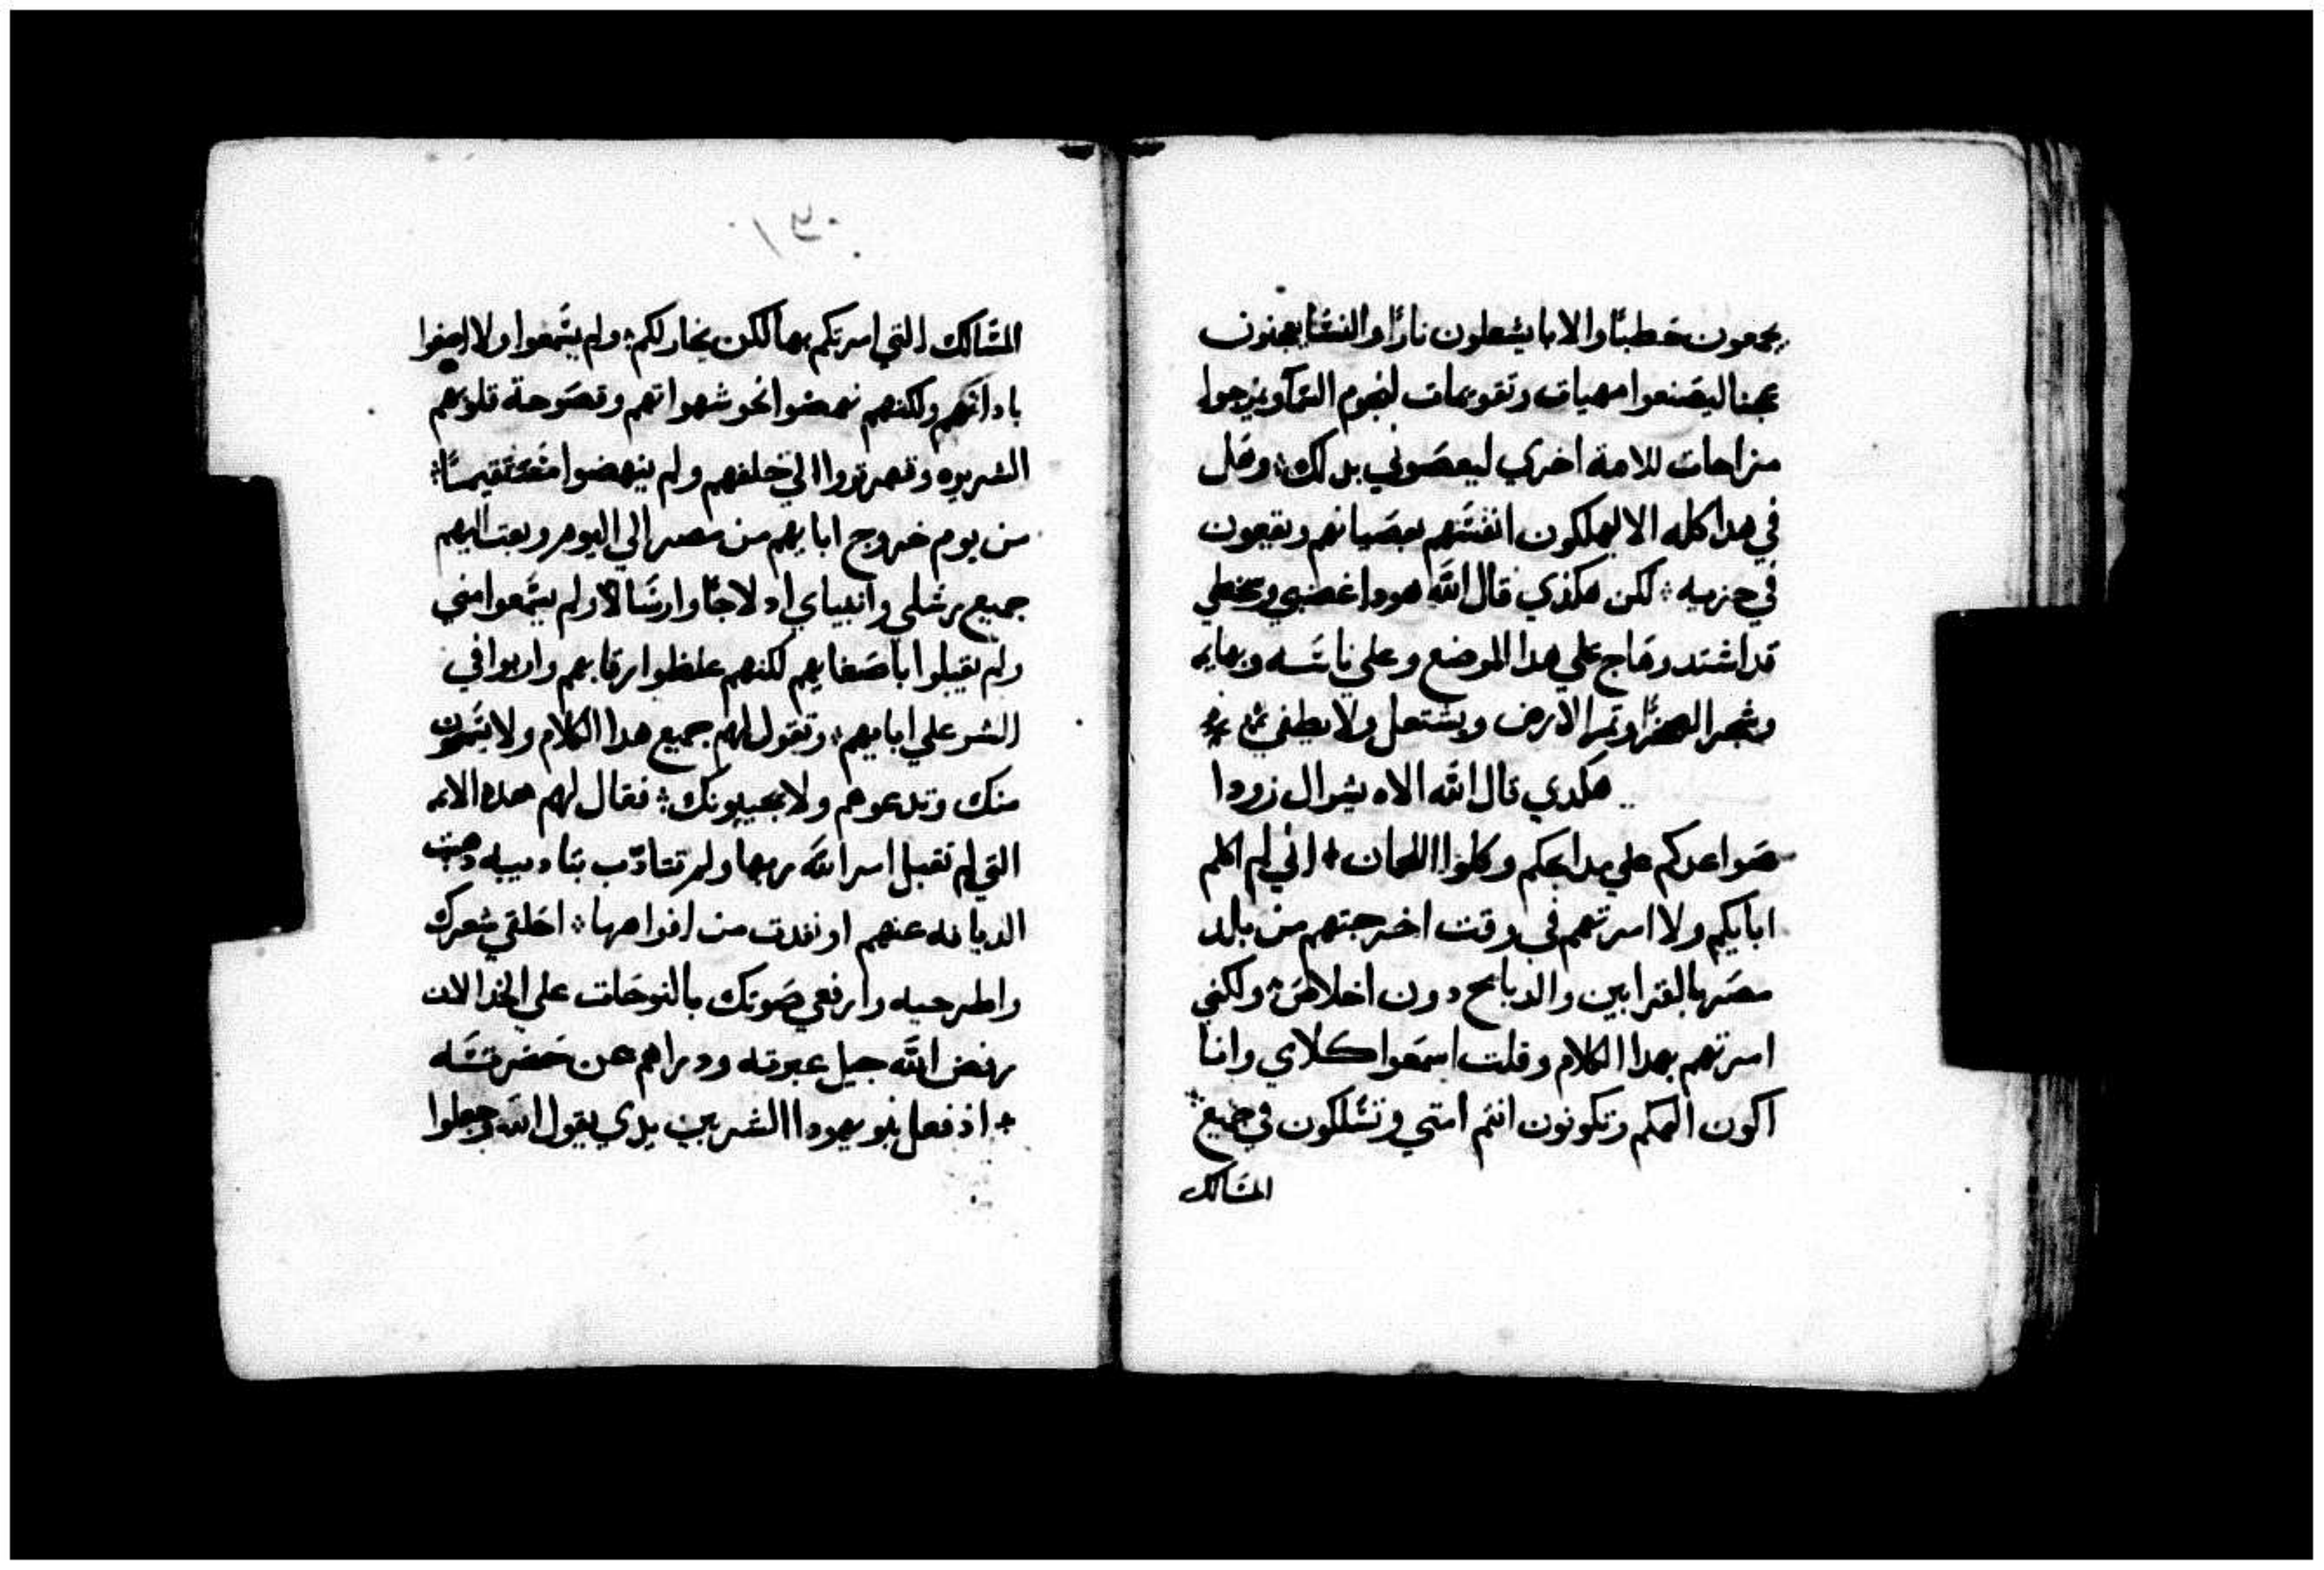 يجمعون حطبًا والابا يشعلون نارًا والنسا يعجنون
عجنا ليصنعوا مهيات وتقويمات لنجوم السما ويمزجوا
مزاجات للامة اخري ليعصوني بدلك وهل
في هدا كله الا يهلكون انفسهم بعصيانهم ويقعون
في حزيه لكن هكذي قال الله هودا غضبي وسخطي
قد اشتد وهاج علي هدا الموضع وعلي ناسه وبهايمه
وشجر الصحرا وتمر الارض ويشتعل ولا يطفي
هكدي قال الله الاه يسرال زودوا
صواعدكم علي مدابحكم وكلوا اللحمان اني لم اكلم
ابايكم ولا امرتهم في وقت اخرجتهم من بلد
مصر بالقرابين والدبايح دون اخلاص ولكني
امرتهم بهدا الكلام وقلت اسمعوا كلامي وانا
اكون الهكم وتكونون انتم امتي وتسلكون في جميع
المسالك
المسالك التي امرتكم بها لكن يخار لكم ولم يسمعوا ولا اصغوا
بادانهم ولكنهم نهضوا نحو شهواتهم وقصوحة قلوبهم
الشريره وقهرتووا الي خلفهم ولم ينهضوا مستقيمسًا
من يوم خروج ابايهم من مصر الي اليوم وبعتت اليهم
جميع رسلي وانبياي ادلاجًا وارسالًا ولم يسمعوا مني
ولم يقبلوا باصغايهم لكنهم غلظوا رقابهم واربوا في
الشر علي ابايهم وتقول لهم جميع هدا الكلام ولا يسمعون
منك وتدعوهم ولا يجيبونك فقال لهم هده الامه
التي لم تقبل امر الله ربها ولم تتادّب بتاديبه دهبت
الديانه عنهم او نفدت من افواهها احلقي شعرك
واطرحيه وارفعي صوتك بالنوحات علي الخد الان
رفض الله جيل عبرته ودراهم عن حضرته
اذ فعل بنو يهودا الشر بين يدي يقول الله وجعلوا